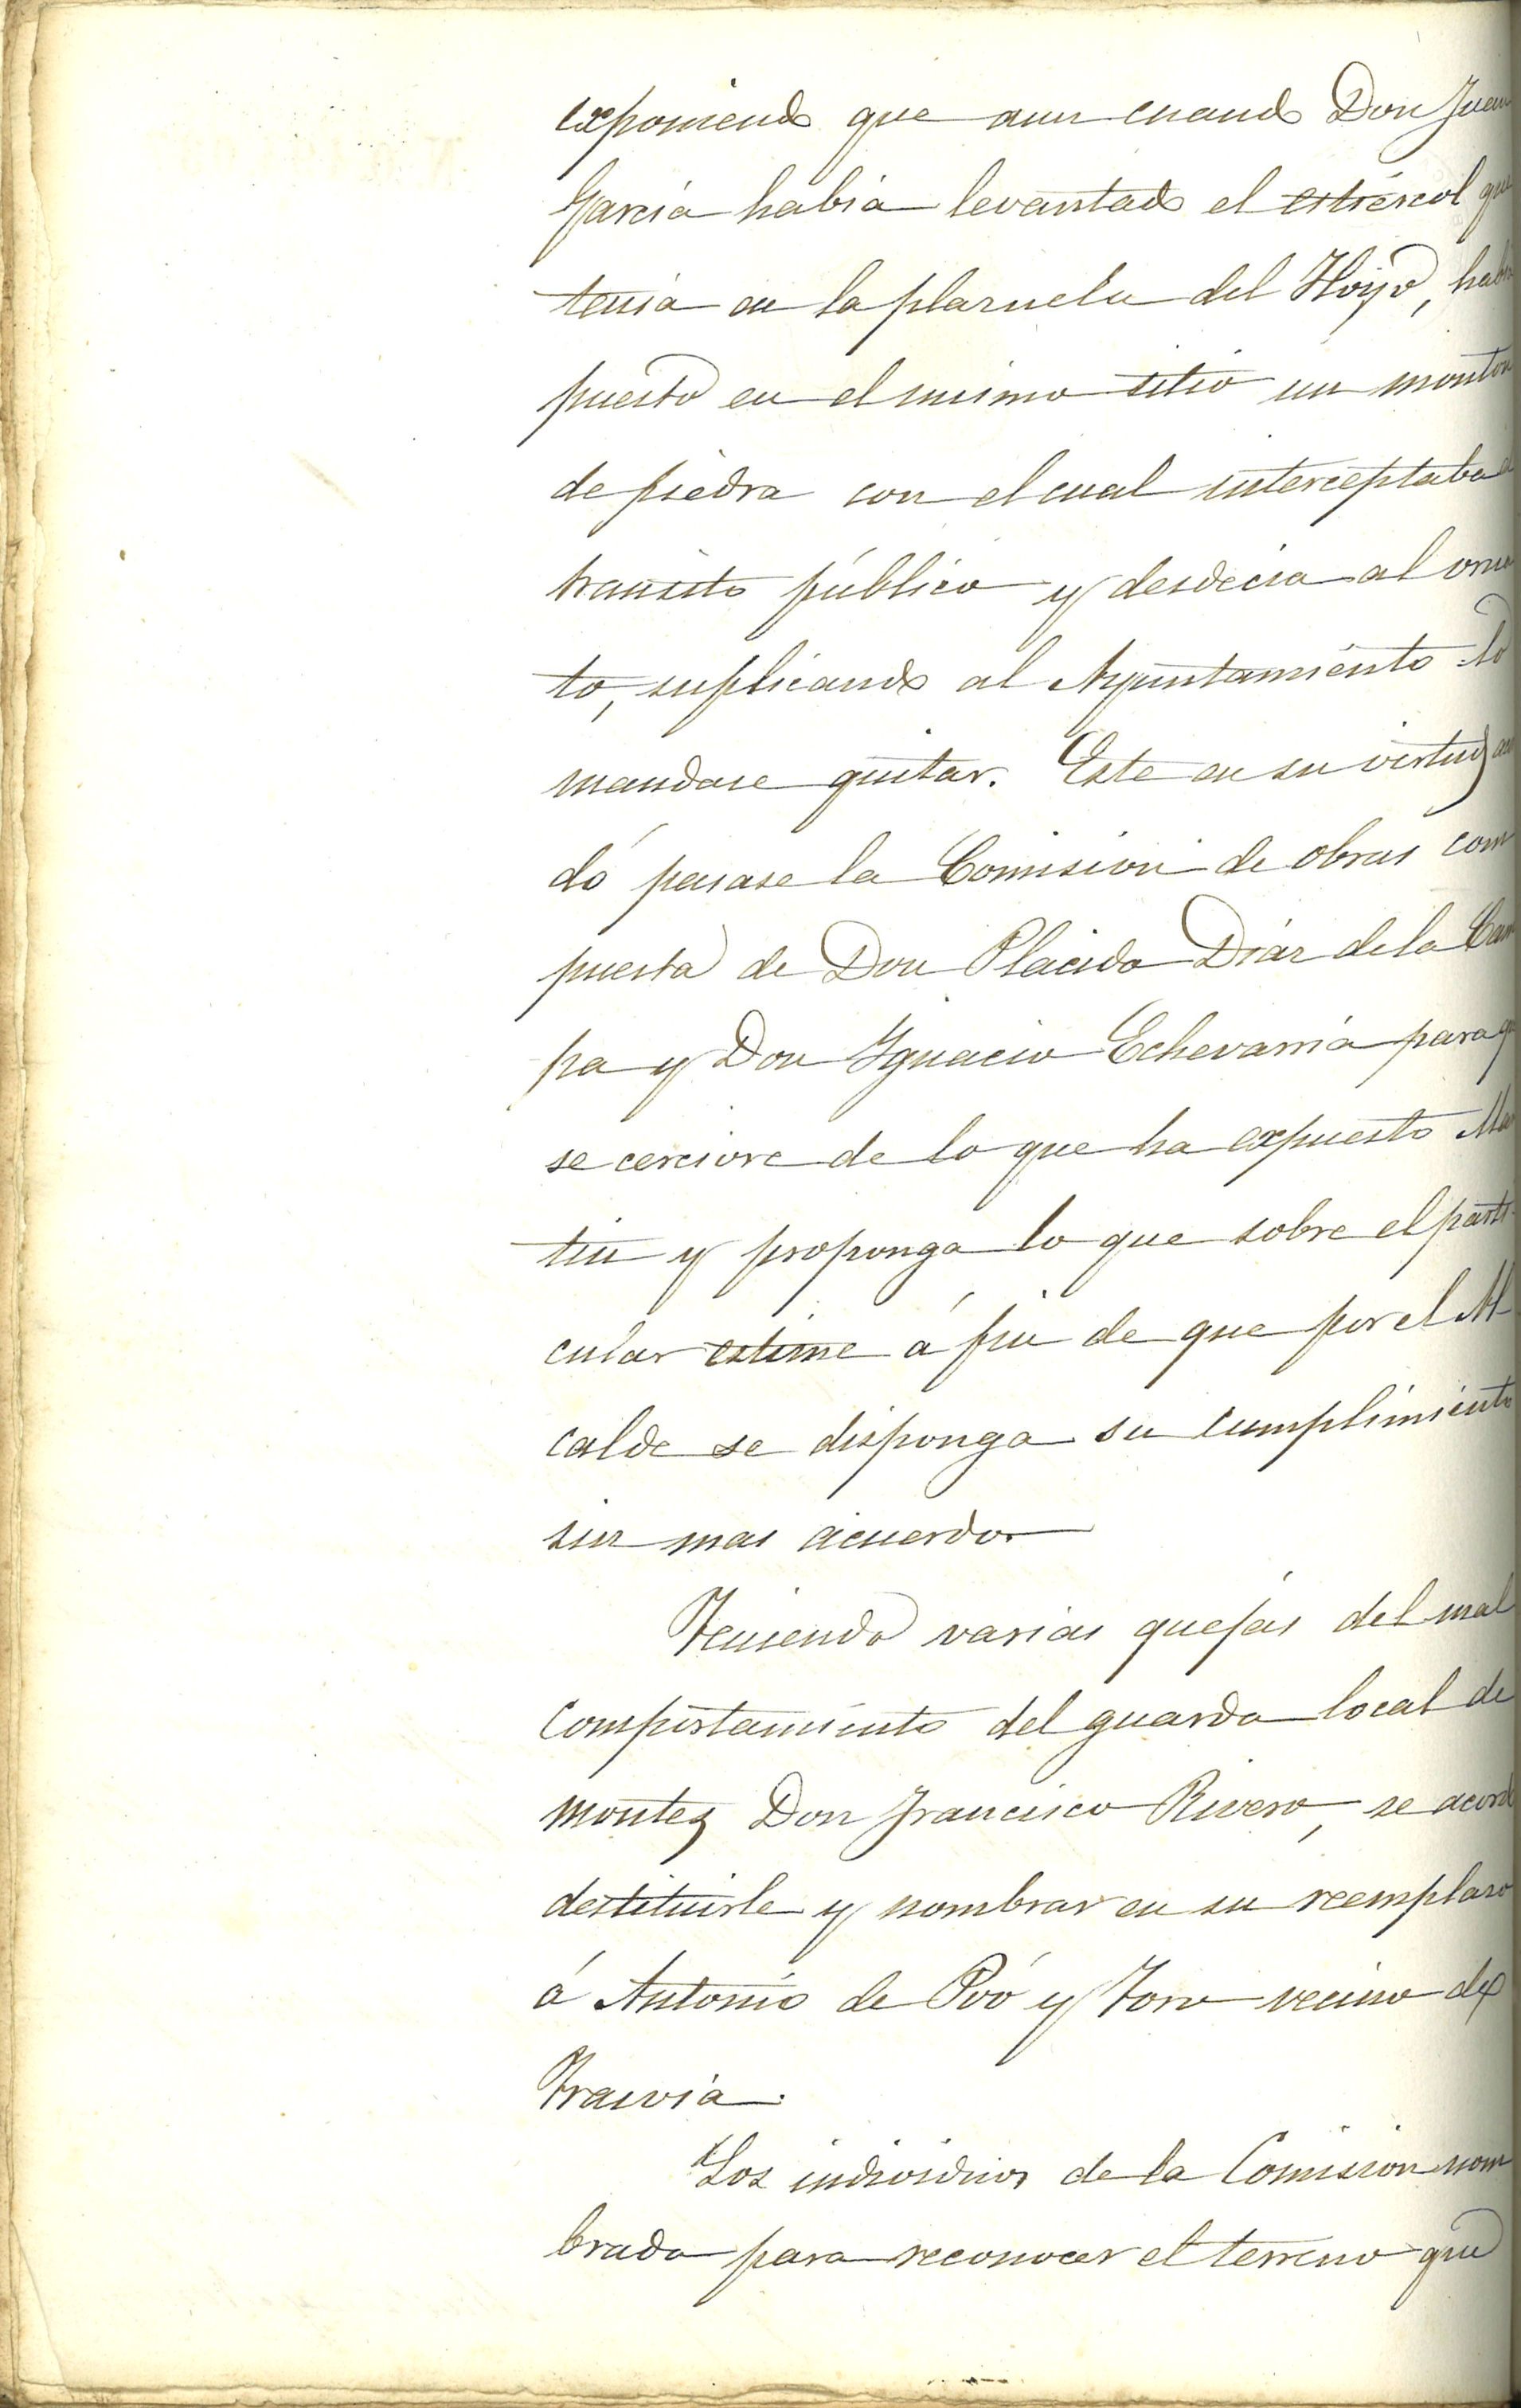 exponiendo que aun cuando Don Juan
García habia levantado el estiércol que
tenia en la plazuela del Hoyo, habia
puesto en el mismo sitio un monton
de piedra con el cual interceptaba el
transito público y desdecia al orna
to, suplicando al Ayuntamiento lo
mandase quitar. Este en su virtud acor
dó pasase la Comision de obras com
puesta de Don Placido Diaz de la Cam
pa y Don Ygnacio Echevarria para que
se cerciore de lo que ha expuesto Mar
tin y proponga lo que sobre el parti
cular estime á fin de que por el Al
calde se disponga su cumplimiento
sin mas acuerdo.
Teniendo varias quejas del mal
comportamiento del guarda local de
montes Don Francisco Rivero, se acordó
destituirle y nombrar en su reemplazo
á Antonio de Poó y Toro vecino de
Trasvia.
Los individuos de la Comision nom
brada para reconocer el terreno que